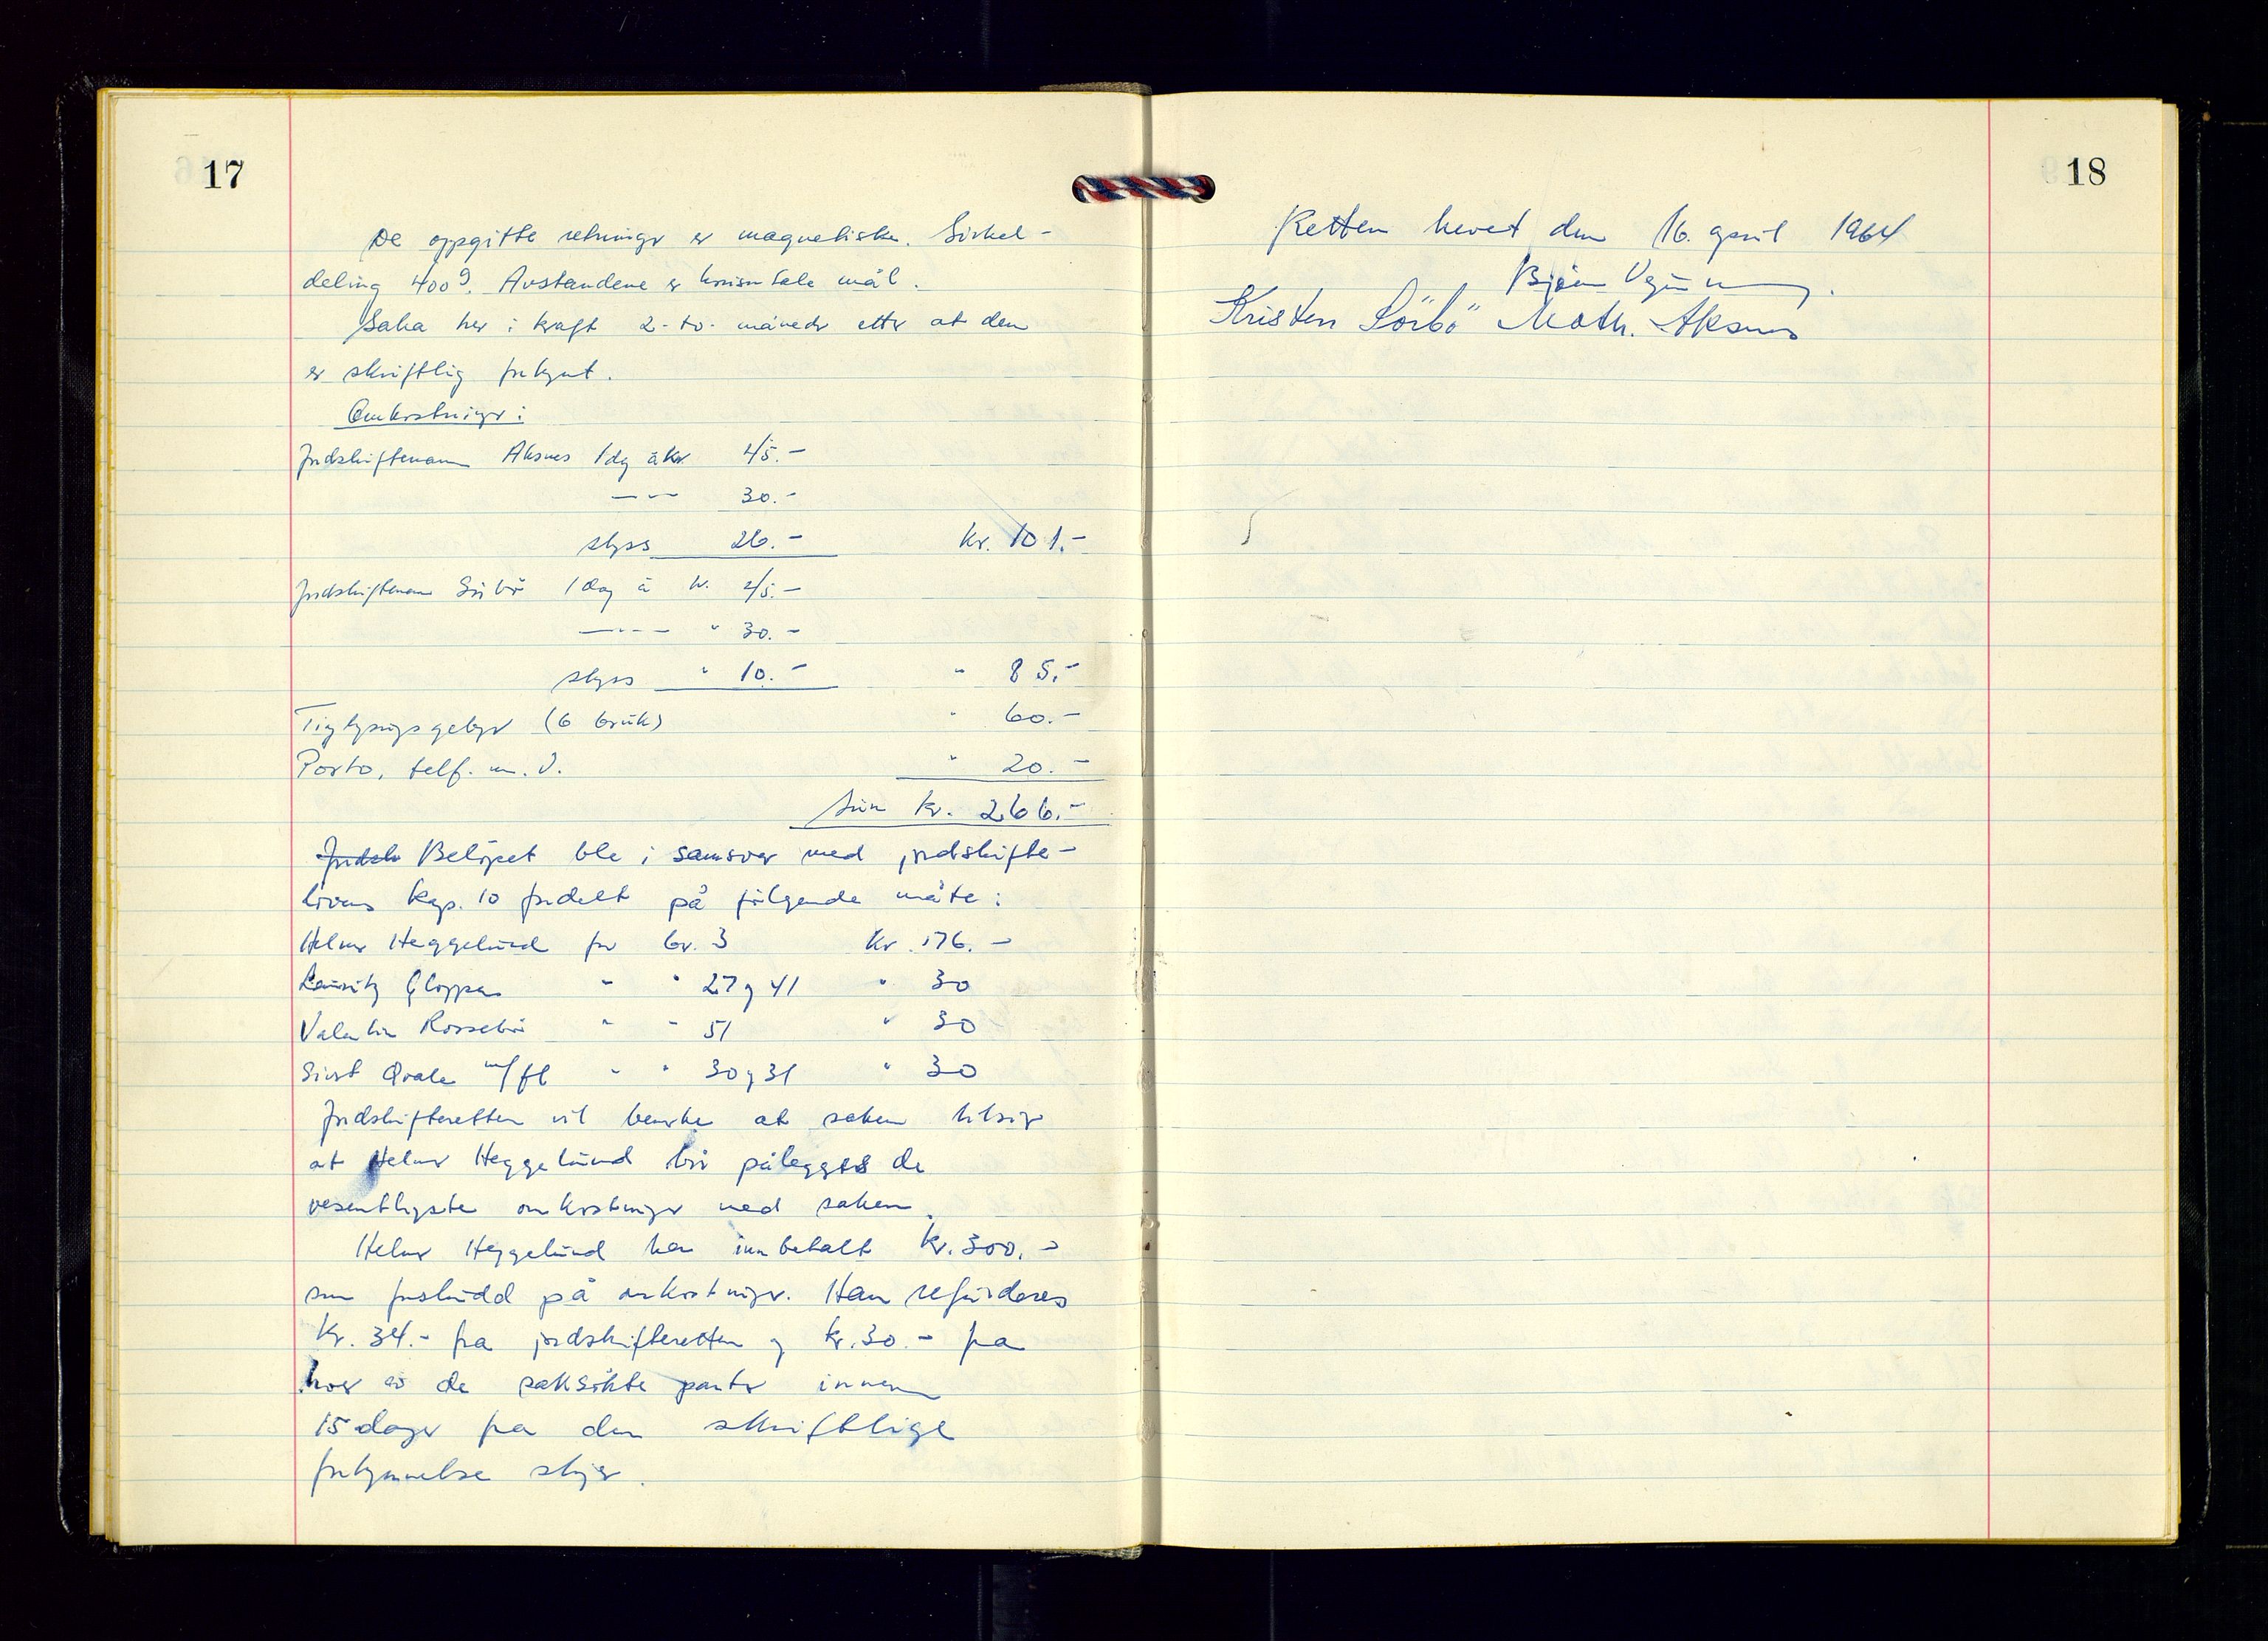 17
De oppgitte retninger er magnetiske. Sirkel-
deling 400g. Avstandene er horisontale mål.
Saka trer i kraft 2-to- måneder etter at den
er skriftlig forkynt.
Omkostninger:
Jordskiftemann Aksnes 1 dag à kr. 45.-
— " — 30.-
skyss 26.- kr. 101.-
Jordskiftemann Sörbö 1 dag à kr. 45.-
— " — " 30.-
skyss " 10.- " 85.-
Tinglysingsgebyr (6 bruk) " 60.-
Porto, telf. m.v. " 20.-
Sum kr. 266.-
Jordsk Belöpet ble i samsvar med jordskifte-
lovens kap. 10 fordelt på følgende måte:
Helmer Heggelund for br. 3 kr. 176.-
Lauritz Gloppen " " 27 og 41 " 30
Valentin Rossebö " " 51 " 30
Sivert Qvale m/fl " " 30 og 31 " 30
Jordskifteretten vil bemerke at saken tilsier
at Helmer Heggelund bör pålegges de
vesentligste omkostninger ved saken.
Helmer Heggelund har innbetalt kr. 300.-
som forskudd på omkostninger. Han refunderes
kr. 34.- fra jordskifteretten og kr. 30.- fra
hver av de saksökte parter innen
15 dager fra den skriftlige
forkynnelse skjer.
18
Retten hevet den 16. april 1964
Kristen Sörbö Math. Aksnes